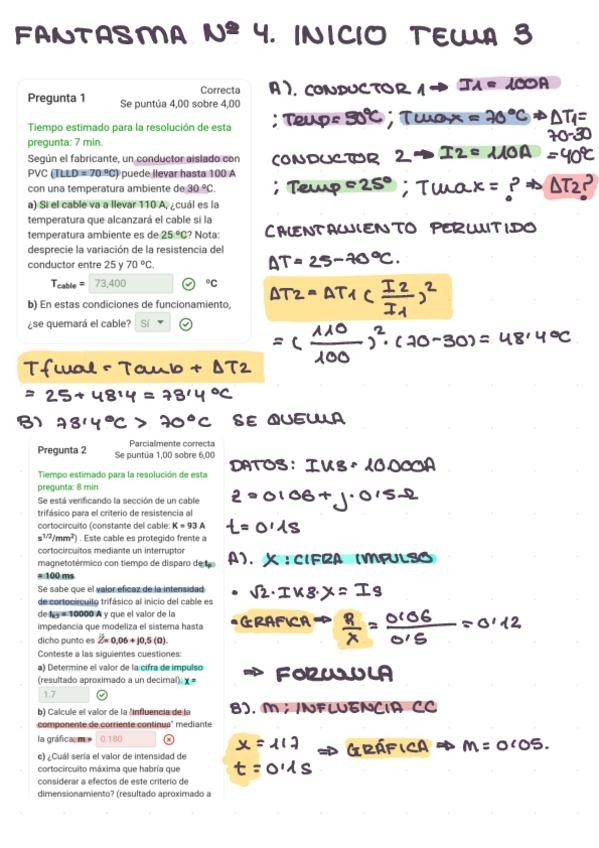 FANTASMA Nº 4. INICIO TEMA 3
Pregunta 1
Correcta
Se puntúa 4,00 sobre 4,00
Tiempo estimado para la resolución de esta
pregunta: 7 min.
Según el fabricante, un conductor aislado con
PVC (TLLD = 70 ºC) puede llevar hasta 100 A
con una temperatura ambiente de 30 ºC.
a) Si el cable va a llevar 110 A, ¿cuál es la
temperatura que alcanzará el cable si la
temperatura ambiente es de 25 ºC? Nota:
desprecie la variación de la resistencia del
conductor entre 25 y 70 ºC.
Tcable = 73,400 ºC
b) En estas condiciones de funcionamiento,
¿se quemará el cable? Sí
A). CONDUCTOR 1 → I1 = 100A
; Temp = 30ºC ; Tmax = 70ºC ⇒ ΔT1 =
70-30
CONDUCTOR 2 → I2 = 110A = 40ºC
; Temp = 25º ; Tmax = ? ⇒ ΔT2?
CALENTAMIENTO PERMITIDO
ΔT = 25-70ºC.
ΔT2 = ΔT1 (I2/I1)²
= (110/100)² · (70-30) = 48'4ºC
Tfinal = Tamb + ΔT2
= 25 + 48'4 = 73'4ºC
B) 73'4ºC > 70ºC SE QUEMA
Pregunta 2
Parcialmente correcta
Se puntúa 1,00 sobre 6,00
Tiempo estimado para la resolución de esta
pregunta: 8 min
Se está verificando la sección de un cable
trifásico para el criterio de resistencia al
cortocircuito (constante del cable: K = 93 A
s^1/2/mm²) . Este cable es protegido frente a
cortocircuitos mediante un interruptor
magnetotérmico con tiempo de disparo de tp
= 100 ms.
Se sabe que el valor eficaz de la intensidad
de cortocircuito trifásico al inicio del cable es
de Ik3 = 10000 A y que el valor de la
impedancia que modeliza el sistema hasta
dicho punto es Z = 0,06 + j0,5 (Ω).
Conteste a las siguientes cuestiones:
a) Determine el valor de la cifra de impulso
(resultado aproximado a un decimal): χ =
1.7
b) Calcule el valor de la "influencia de la
componente de corriente continua" mediante
la gráfica: m = 0.180
c) ¿Cuál sería el valor de intensidad de
cortocircuito máxima que habría que
considerar a efectos de este criterio de
dimensionamiento? (resultado aproximado a
DATOS: IK3 = 10.000A
Z = 0'06 + j · 0'5 Ω
t = 0'1s
A). X : CIFRA IMPULSO
• √2 · IK3 · X = Is
• GRAFICA → R/X = 0'06/0'5 = 0'12
⇒ FORMULA
B). m ; INFLUENCIA CC
X = 1'7 ⇒ GRÁFICA ⇒ M = 0'05.
t = 0'1s